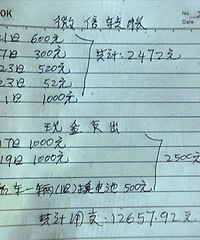 OOK
No.
微信转账
21日 600元
7日 300元
23日 520元
23日 52元
1日 1000元
共计:2472元
现金支出
17日 1000元
19日 1000元
车一辆(旧)换电池 500元
2500
共计用支:12657.92元